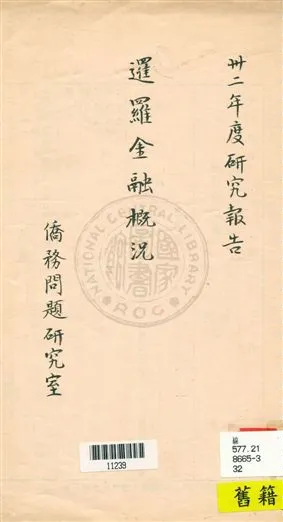 卅二年度研究報告
暹羅金融概況
僑務問題研究室
NATIONAL CENTRAL LIBRARY
R.O.C.
國家圖書館
11239
577.21
8665-3
32
舊籍